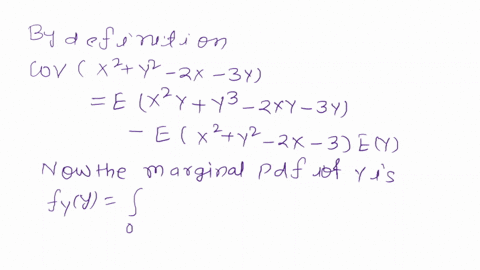 By definition
Cov ( x²+ y² -2x -3y)
= E (x²y + y³ -2xy -3y)
- E ( x²+y² -2x -3) E(Y)
Now the marginal Pdf of Y is
fy(y) = ∫
0